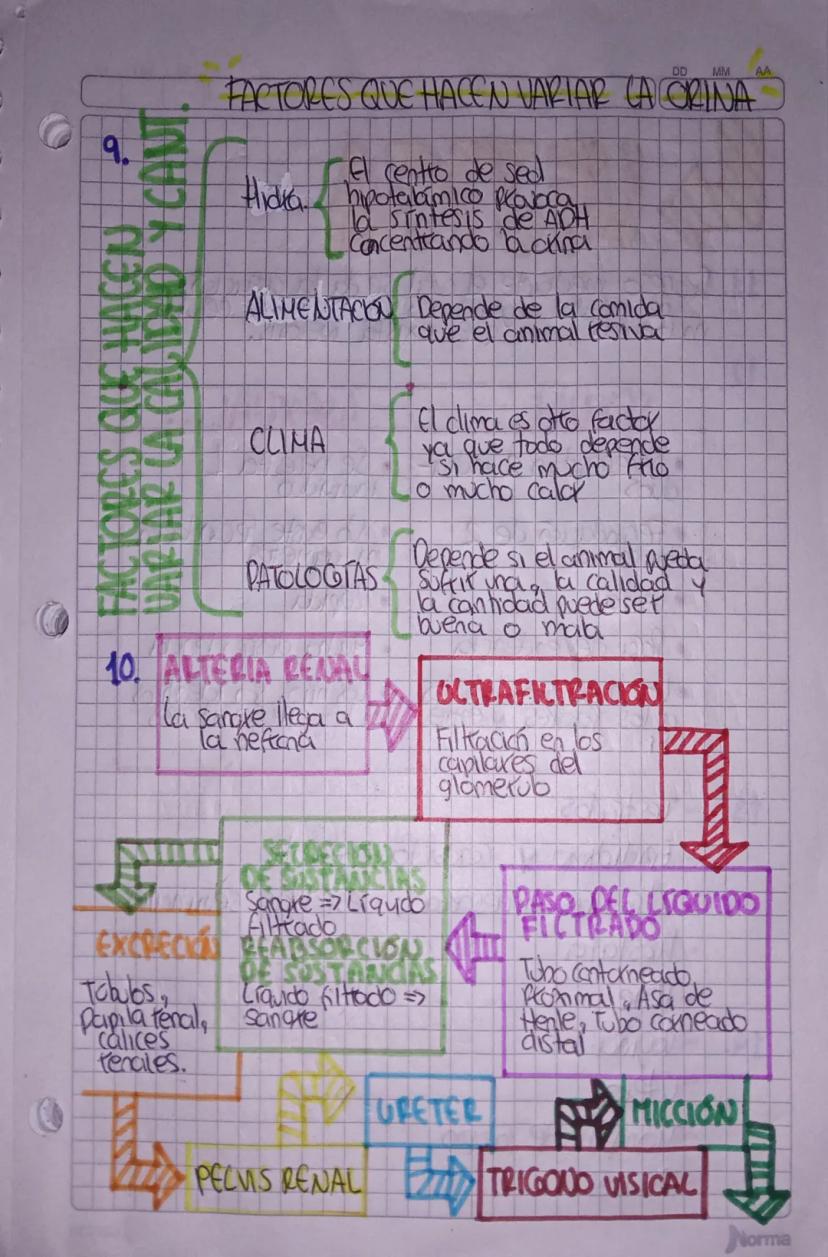 DD MM AA
FACTORES QUE HACEN VARIAR LA ORINA
9.
FACTORES QUE HACEN
VARIAR LA CALIDAD Y CANT.
Hidra.
El centro de sed
hipotalámico provoca
la síntesis de ADH
concentrando la orina
ALIMENTACIÓN
Depende de la comida
que el animal resiva
CLIMA
El clima es otro factor
ya que todo depende
si hace mucho frio
o mucho calor
PATOLOGÍAS
Depende si el animal pueda
sufrir una, la calidad y
la cantidad puede ser
buena o mala
10.
ARTERIA RENAL
La sangre llega a
la nefrona
ULTRAFILTRACIÓN
Filtración en los
capilares del
glomerulo
PASO DEL LÍQUIDO
FILTRADO
Tubo contorneado
Proximal, Asa de
Henle, Tubo corneado
distal
SECRECION
DE SUSTANCIAS
Sangre => Líquido
filtrado
REABSORCIÓN
DE SUSTANCIAS
Líquido filtrado =>
sangre
EXCRECIÓN
Tobulos,
papila renal,
cálices
renales.
PELVIS RENAL
URETER
TRIGONO VISICAL
MICCIÓN
Norma